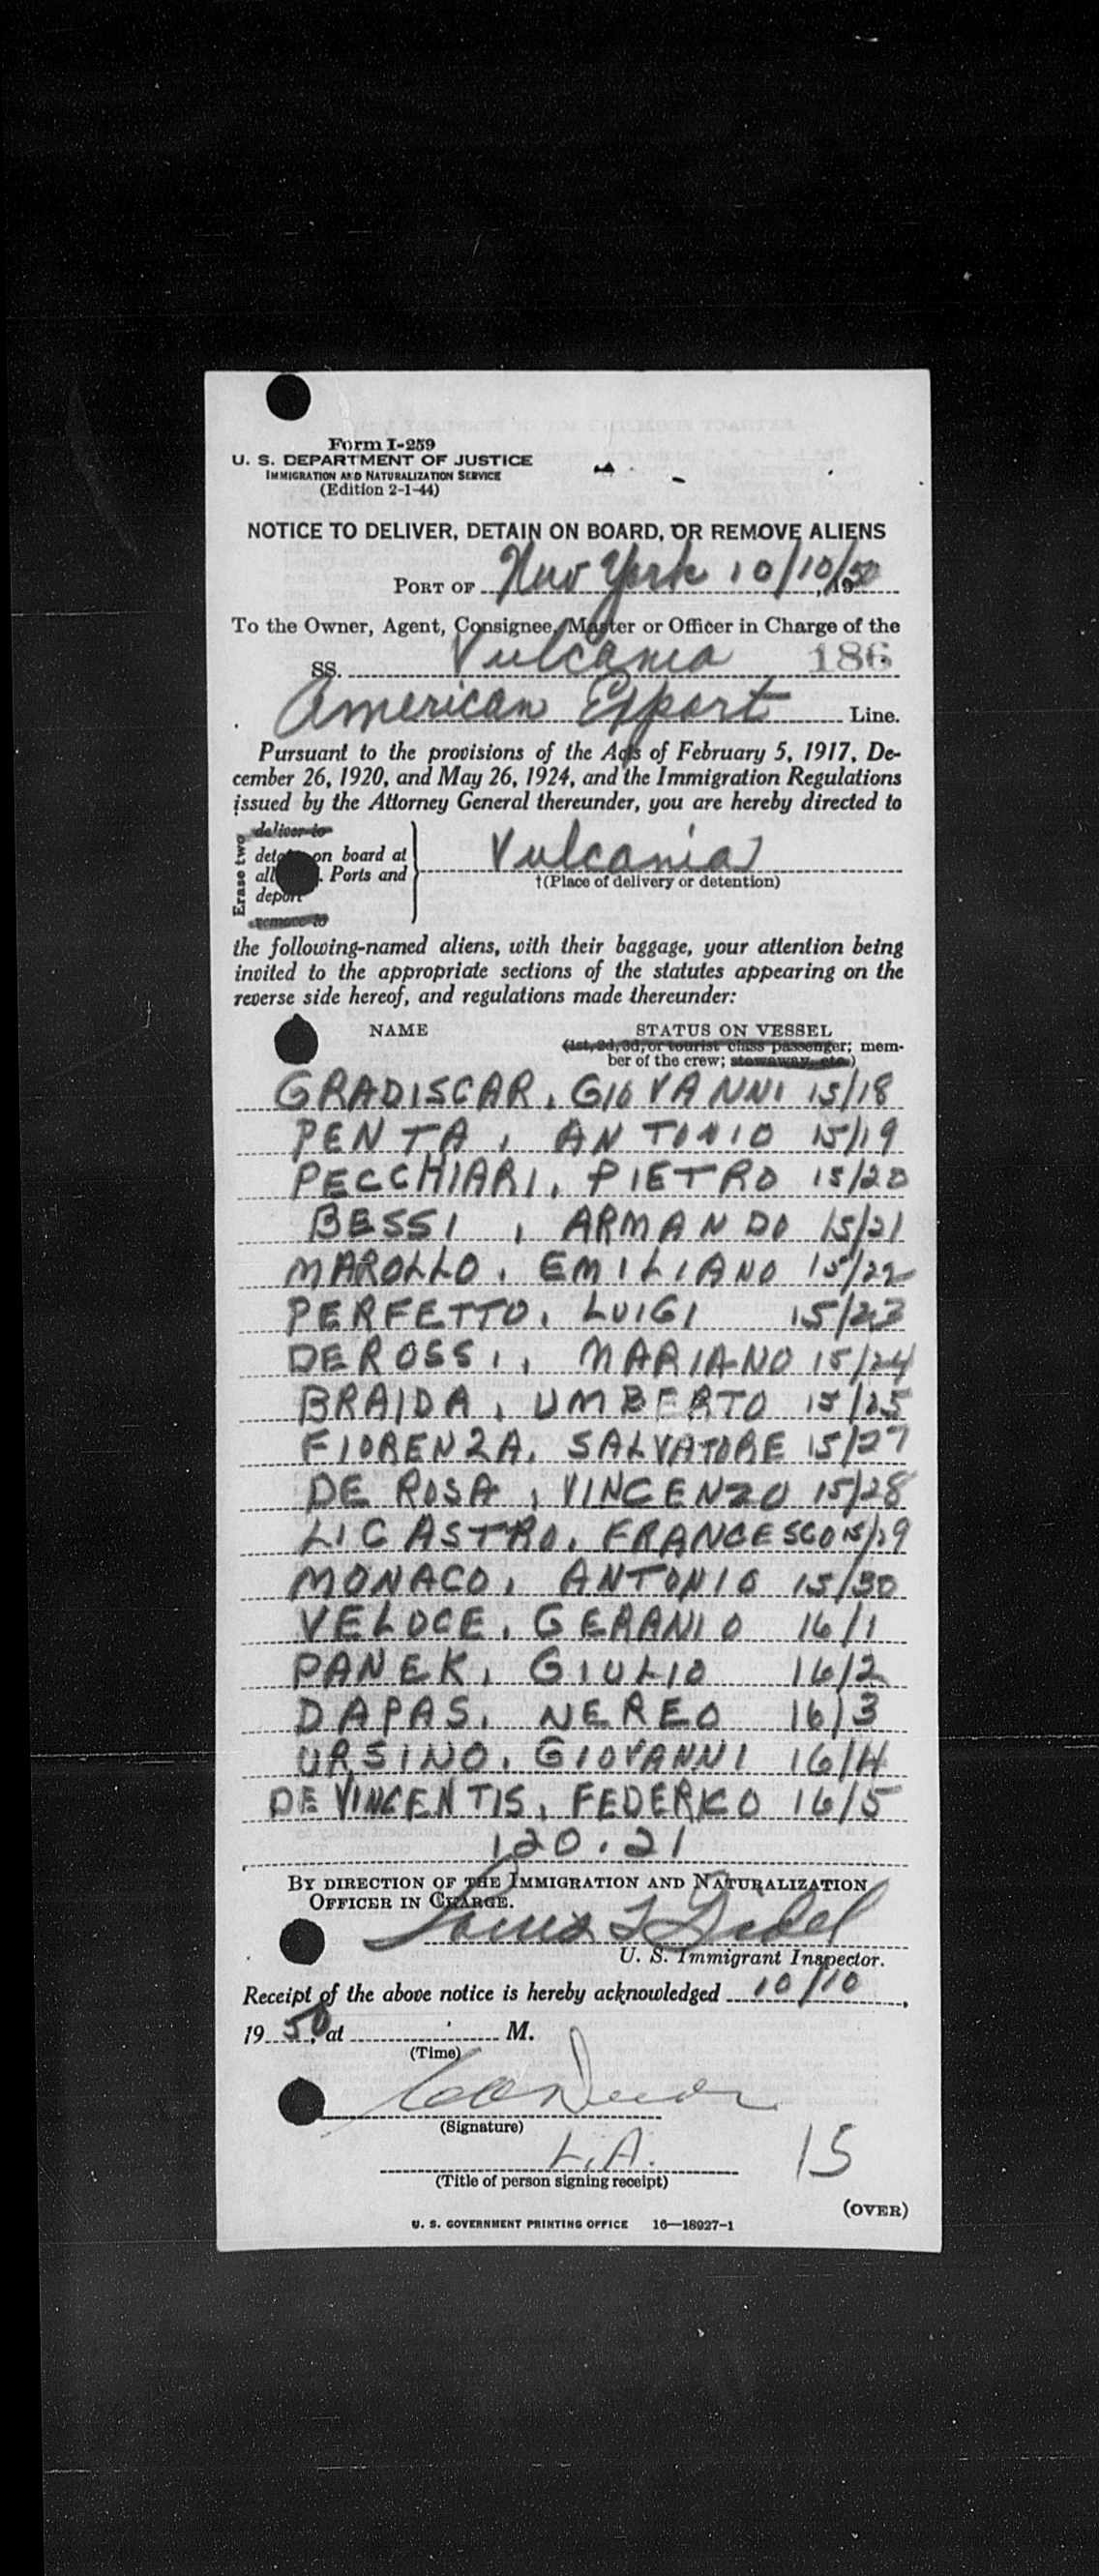 Form I-259
U. S. DEPARTMENT OF JUSTICE
IMMIGRATION AND NATURALIZATION SERVICE
(Edition 2-1-44)
NOTICE TO DELIVER, DETAIN ON BOARD, OR REMOVE ALIENS
PORT OF New York 10/10/, 1950
To the Owner, Agent, Consignee, Master or Officer in Charge of the
SS. Vulcania 186
American Export Line.
Pursuant to the provisions of the Acts of February 5, 1917, De-
cember 26, 1920, and May 26, 1924, and the Immigration Regulations
issued by the Attorney General thereunder, you are hereby directed to
Erase two
deliver to
on board at
all . Ports and
deport
remove to
Vulcania
†(Place of delivery or detention)
the following-named aliens, with their baggage, your attention being
invited to the appropriate sections of the statutes appearing on the
reverse side hereof, and regulations made thereunder:
NAME STATUS ON VESSEL
(1st, 2d, 3d, or tourist class passenger; mem-
ber of the crew; stowaway, etc.)
GRADISCAR, GIOVANNI 15/18
PENTA, ANTONIO 15/19
PECCHIARI, PIETRO 15/20
BESSI, ARMANDO 15/21
MAROLLO, EMILIANO 15/22
PERFETTO, LUIGI 15/23
DEROSSI, MARIANO 15/24
BRAIDA, UMBERTO 15/25
FIORENZA, SALVATORE 15/27
DE ROSA, VINCENZO 15/28
LICASTRO, FRANCESCO 15/29
MONACO, ANTONIO 15/30
VELOCE, GERANIO 16/1
PANEK, GIULIO 16/2
DAPAS, NEREO 16/3
URSINO, GIOVANNI 16/4
DE VINCENTIS, FEDERICO 16/5
120.21
BY DIRECTION OF THE IMMIGRATION AND NATURALIZATION
OFFICER IN CHARGE.
U. S. Immigrant Inspector.
Receipt of the above notice is hereby acknowledged 10/10,
1950, at M.
(Time)
(Signature)
L.A.
(Title of person signing receipt)
15
(OVER)
U. S. GOVERNMENT PRINTING OFFICE 16—18927-1